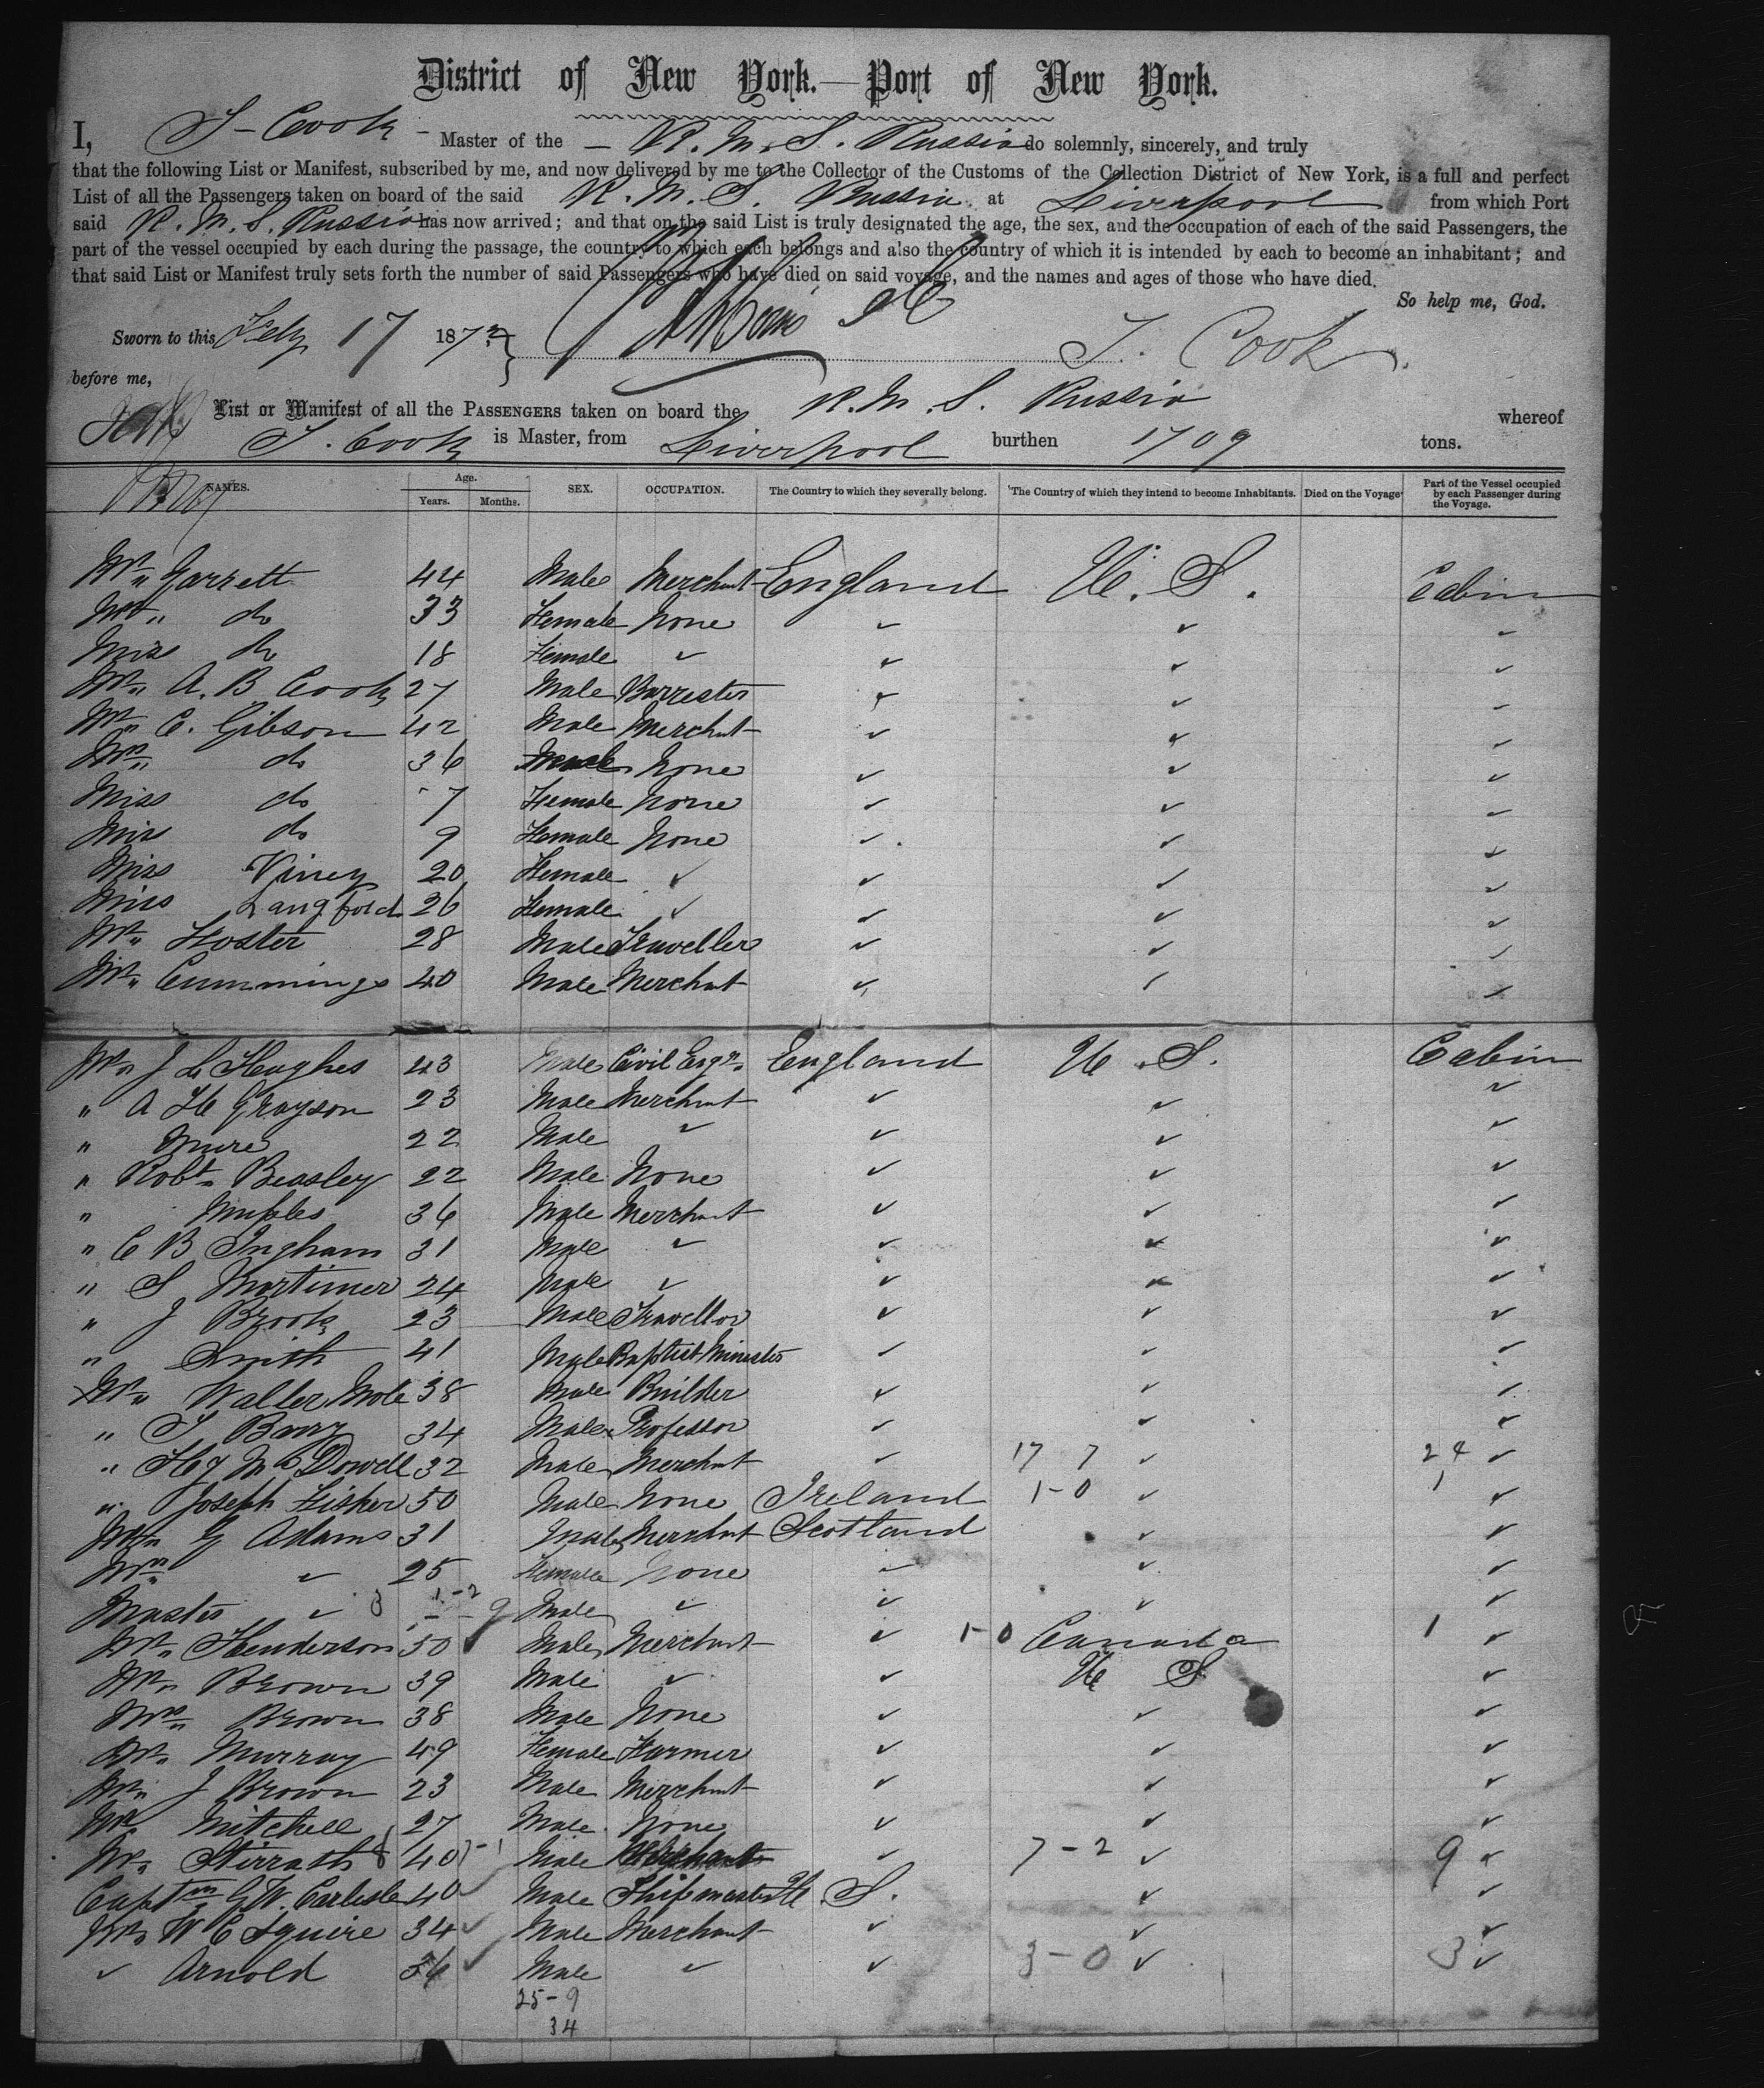 District of New York.—Port of New York.
I, T- Cook - Master of the — R. M. S. Russia do solemnly, sincerely, and truly
that the following List or Manifest, subscribed by me, and now delivered by me to the Collector of the Customs of the Collection District of New York, is a full and perfect
List of all the Passengers taken on board of the said R. M. S. Russia at Liverpool from which Port
said R. M. S. Russia has now arrived; and that on the said List is truly designated the age, the sex, and the occupation of each of the said Passengers, the
part of the vessel occupied by each during the passage, the country to which each belongs and also the country of which it is intended by each to become an inhabitant; and
that said List or Manifest truly sets forth the number of said Passengers who have died on said voyage, and the names and ages of those who have died.
So help me, God.
Sworn to this Feby 17 187 } T. Cook.
before me,
List or Manifest of all the PASSENGERS taken on board the R. M. S. Russia whereof
T. Cook is Master, from Liverpool burthen 1709 tons.
NAMES. Age. Years. Months. SEX. OCCUPATION. The Country to which they severally belong. The Country of which they intend to become Inhabitants. Died on the Voyage Part of the Vessel occupied by each Passenger during the Voyage.
Mr. Garrett 44 Male Merchant England U. S. Cabin
Mrs. do 33 Female None ✓ ✓ ✓
Miss do 18 Female ✓ ✓ ✓ ✓
Mr. A. B Cook 27 Male Barrester ✓ ✓ ✓
Mr. C. Gibson 42 Male Merchant ✓ ✓ ✓
Mrs. do 36 None ✓ ✓ ✓
Miss do 7 Female None ✓ ✓ ✓
Miss do 9 Female None ✓ ✓ ✓
Miss Viney 20 Female ✓ ✓ ✓ ✓
Miss Langford 26 Female ✓ ✓ ✓ ✓
Mr. Foster 28 Male Traveller ✓ ✓ ✓
Mr. Cummings 40 Male Merchant ✓ ✓ ✓
Mr. J L Hughes 43 Male Civil Engr. England U. S. Cabin
" A H Grayson 23 Male Merchant ✓ ✓ ✓
" Mure 22 Male ✓ ✓ ✓ ✓
" Robt. Beasley 22 Male None ✓ ✓ ✓
" 36 Male Merchant ✓ ✓ ✓
" C B Ingham 31 Male ✓ ✓ ✓ ✓
" S Mortimer 24 Male ✓ ✓ ✓ ✓
" J Brook 23 Male Travellor ✓ ✓ ✓
" Smith 41 Male Baptist Minester ✓ ✓ ✓
Mr. Walter Mole 38 Male Builder ✓ ✓ ✓
" T 34 Male Professor ✓ ✓ ✓
" Hy McDowell 32 Male Merchant ✓ 17 7 ✓ 24 ✓
" Joseph Fisher 50 Male None Ireland 1-0 ✓ 1 ✓
Mr. G Adams 31 Male Merchant Scotland ✓ ✓
Mrs. ✓ 25 Female None ✓ ✓ ✓
Master ✓ 3 1-2 - - 9 Male ✓ ✓ ✓ ✓
Mr. Henderson 50 Male Merchant ✓ 1-0 Canada 1 ✓
Mr. Brown 39 Male ✓ ✓ U S ✓
Mrs. Brown 38 Male None ✓ ✓ ✓
Mr. Murray 49 Female Farmer ✓ ✓ ✓
Mr. J Brown 23 Male Merchant ✓ ✓ ✓
Mr. Mitchell 27 Male None ✓ ✓ ✓
Mr. 8 40 7-1 Male Merchant ✓ 7-2 ✓ 9 ✓
Captn. G. W. Carlisle 40 ✓ Male Shipmaster U. S. ✓ ✓
Mr. W C Squire 34 ✓ Male Merchant ✓ ✓ ✓
✓ Arnold ✓ Male ✓ ✓ 3-0 ✓ 3 ✓
25-9
34